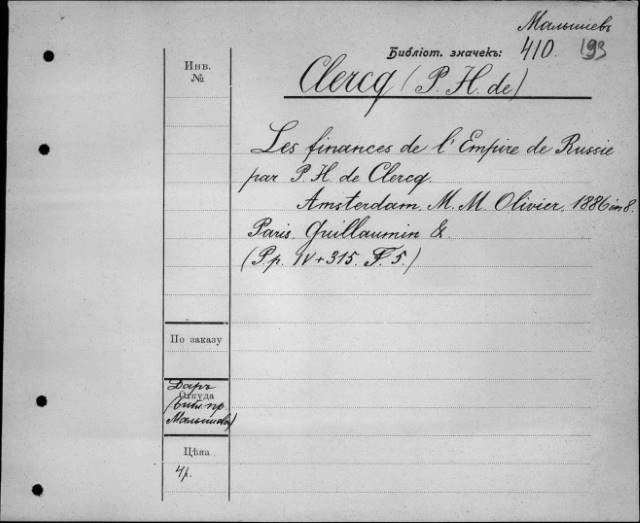 Малышевъ
Библіот. значекъ: 410. 193
Инв.
№
Clercq (P. H. de)
Les finances de l'Empire de Russie
par P. H. de Clercq.
Amsterdam. M. M. Olivier. 1886 in 8.
Paris. Guillaumin &
(Pp. IV + 315. F. 5.)
По заказу
Даръ
Откуда
(библ. пр.
Малышева)
Цѣна
4р.